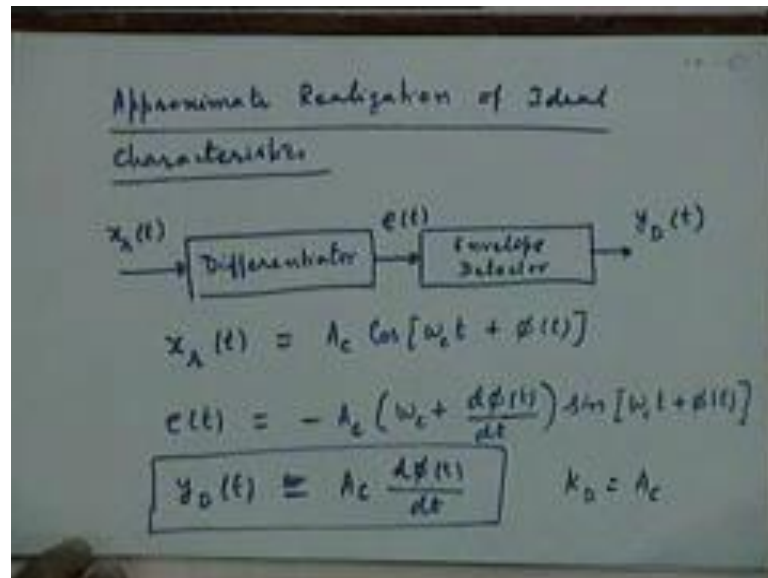 Approximate Realization of Ideal
Characteristics
x_r(t) e(t) y_D(t)
Differentiator Envelope Detector
x_r(t) = A_c Cos[ω_c t + φ(t)]
e(t) = - A_c (ω_c + dφ(t)/dt) sin [ω_c t + φ(t)]
y_D(t) ≅ A_c dφ(t)/dt K_D = A_c